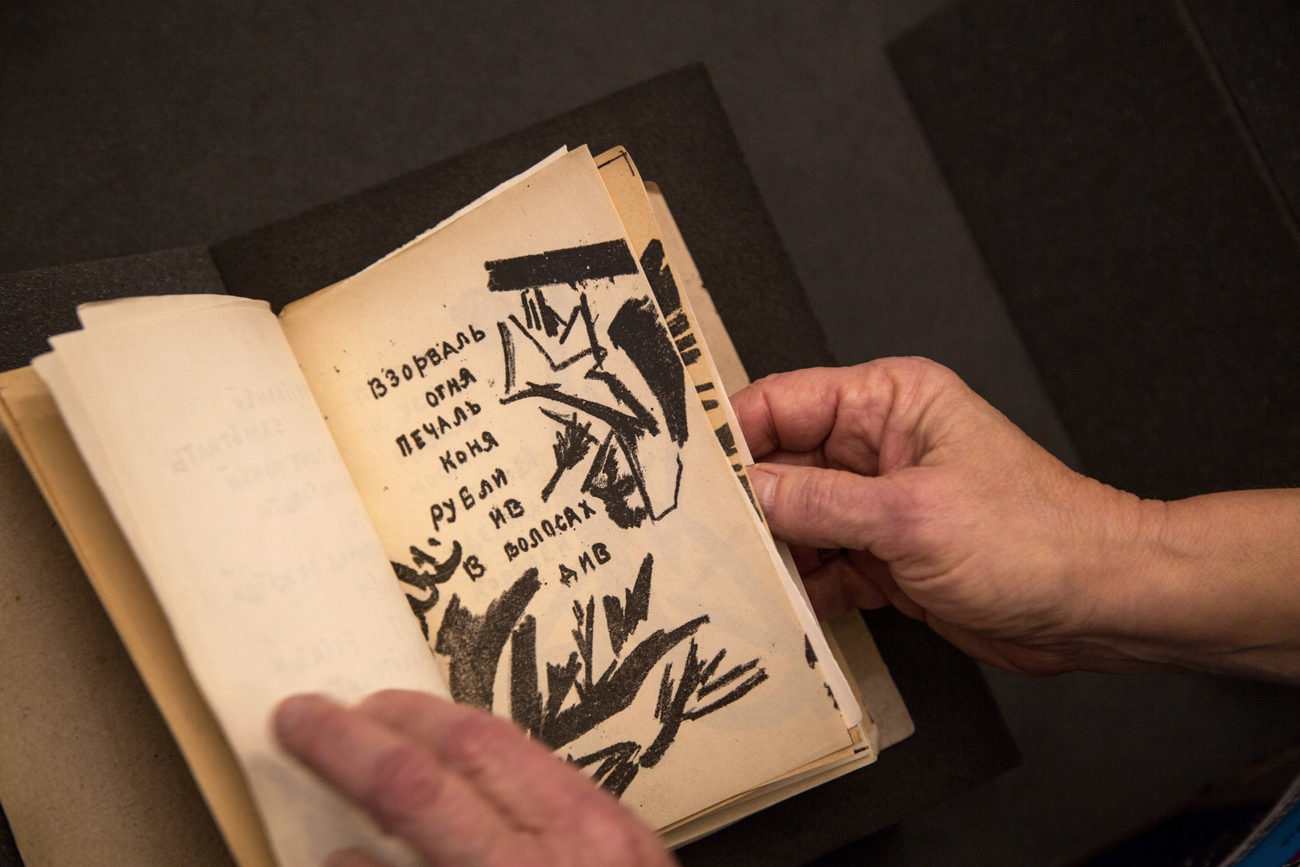 ВЗОРВАЛЬ
ОГНЯ
ПЕЧАЛЬ
КОНЯ
РУБЛИ
ИВ
В ВОЛОСАХ
ДИВ